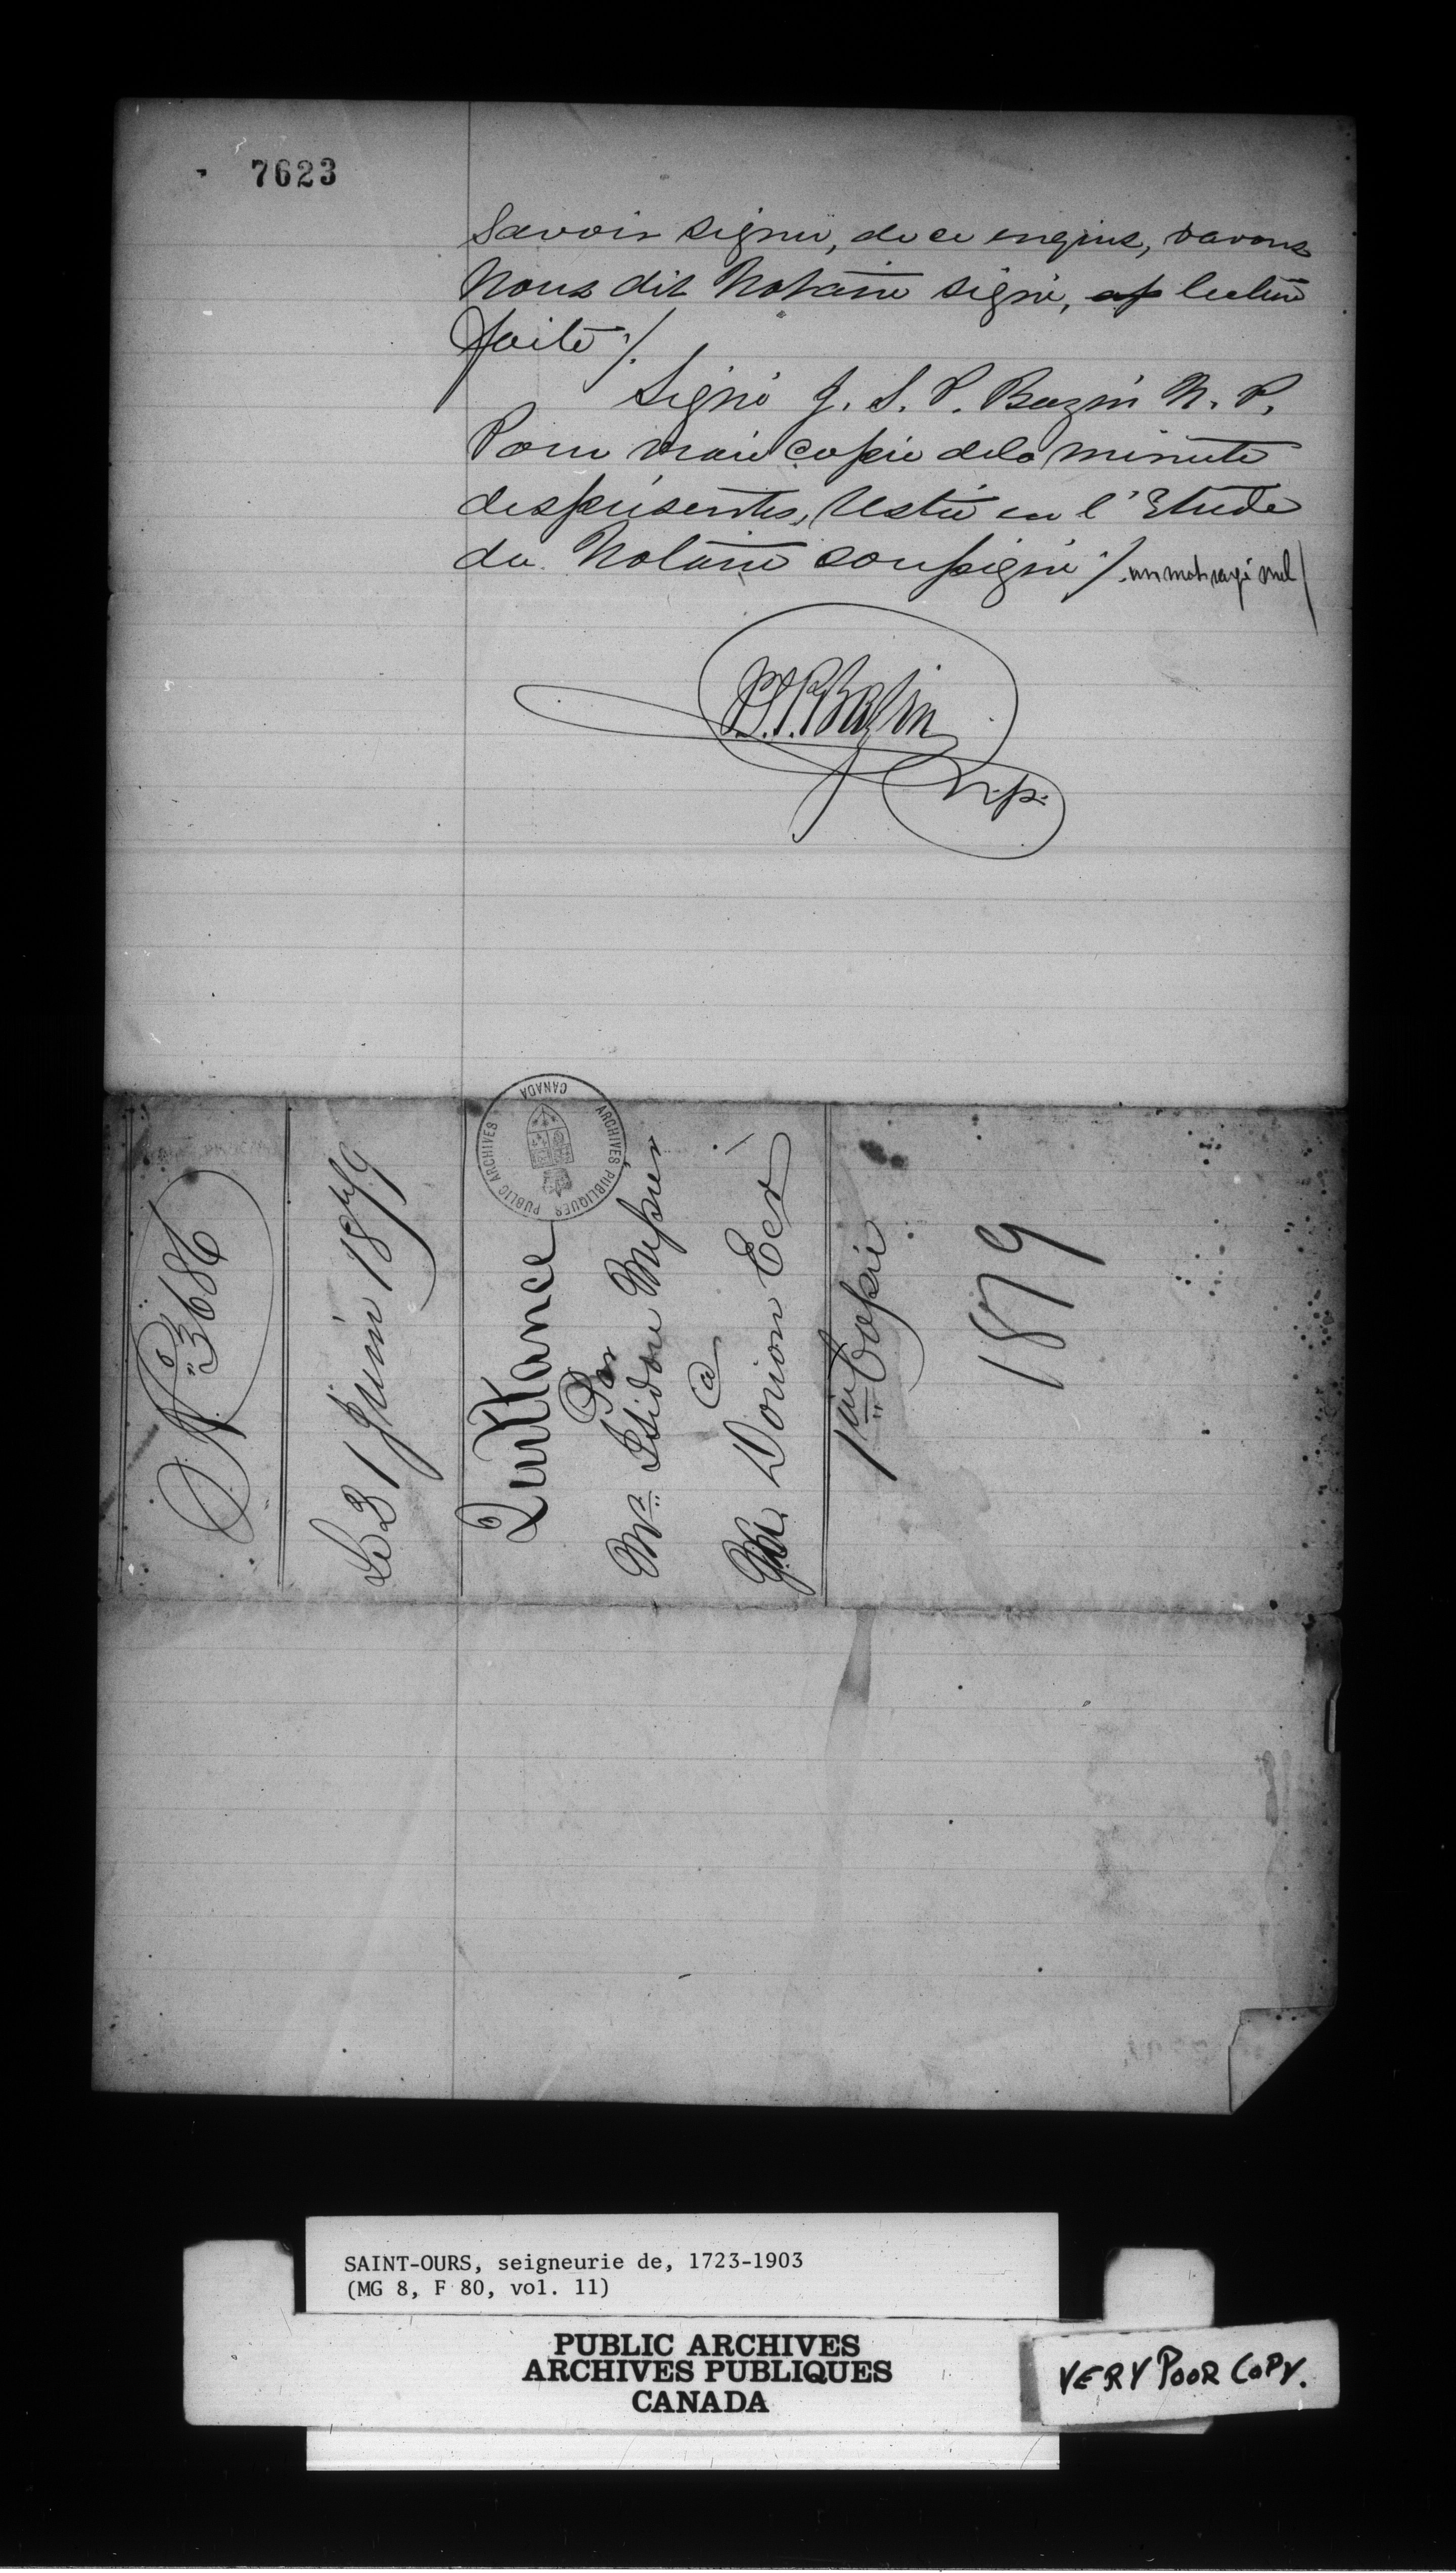 7623
Savoir signer, de ce enquis, & avons
Nous dit Notaire signé, ap lecture
faite ./.
Signé J. S. P. Bazin N. P.
Pour vraie copie de la minute
des présentes, restée en l'Etude
du Notaire soussigné ./. un mot rayé nul
J.S.P. Bazin
n.p.
PUBLIC ARCHIVES
ARCHIVES PUBLIQUES
CANADA
No 3686
Le 31 Juin 1879
Quittance
Par
Mr Isidore Messier
@
Dorion Ecr
1ère Copie
1879
SAINT-OURS, seigneurie de, 1723-1903
(MG 8, F 80, vol. 11)
PUBLIC ARCHIVES
ARCHIVES PUBLIQUES
CANADA
VERY POOR COPY.